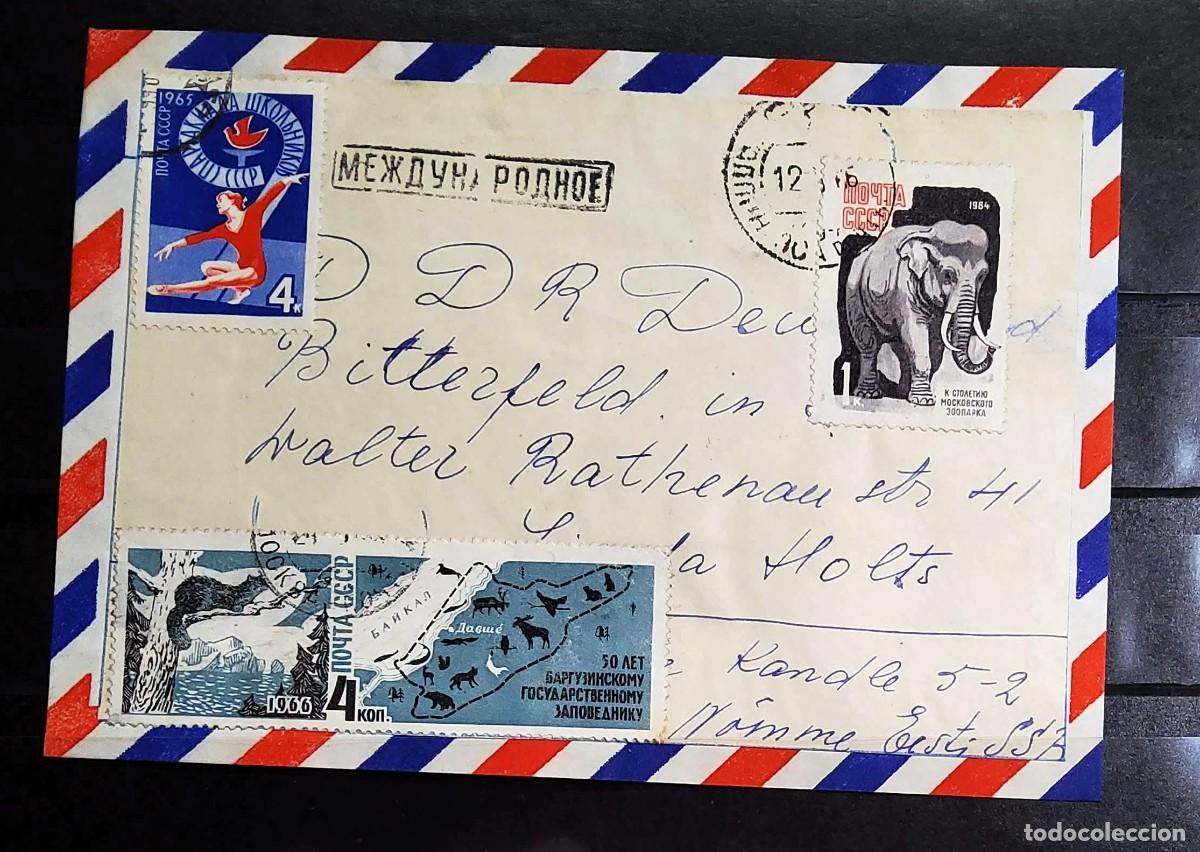 ПОЧТА СССР 1965
СПАРТАКИАДА ШКОЛЬНИКОВ
СССР
4 к
МЕЖДУНАРОДНОЕ
12
ПОЧТА
СССР
1964
1 к.
К СТОЛЕТИЮ
МОСКОВСКОГО
ЗООПАРКА
D D R
Bitterfeld in
Walter Rathenau str 41
Holts
МОСКВА
ПОЧТА СССР
БАЙКАЛ
Давше
50 ЛЕТ
БАРГУЗИНСКОМУ
ГОСУДАРСТВЕННОМУ
ЗАПОВЕДНИКУ
1966
4 коп.
Kandle 5-2
Nõmme Eesti SSR
todocoleccion